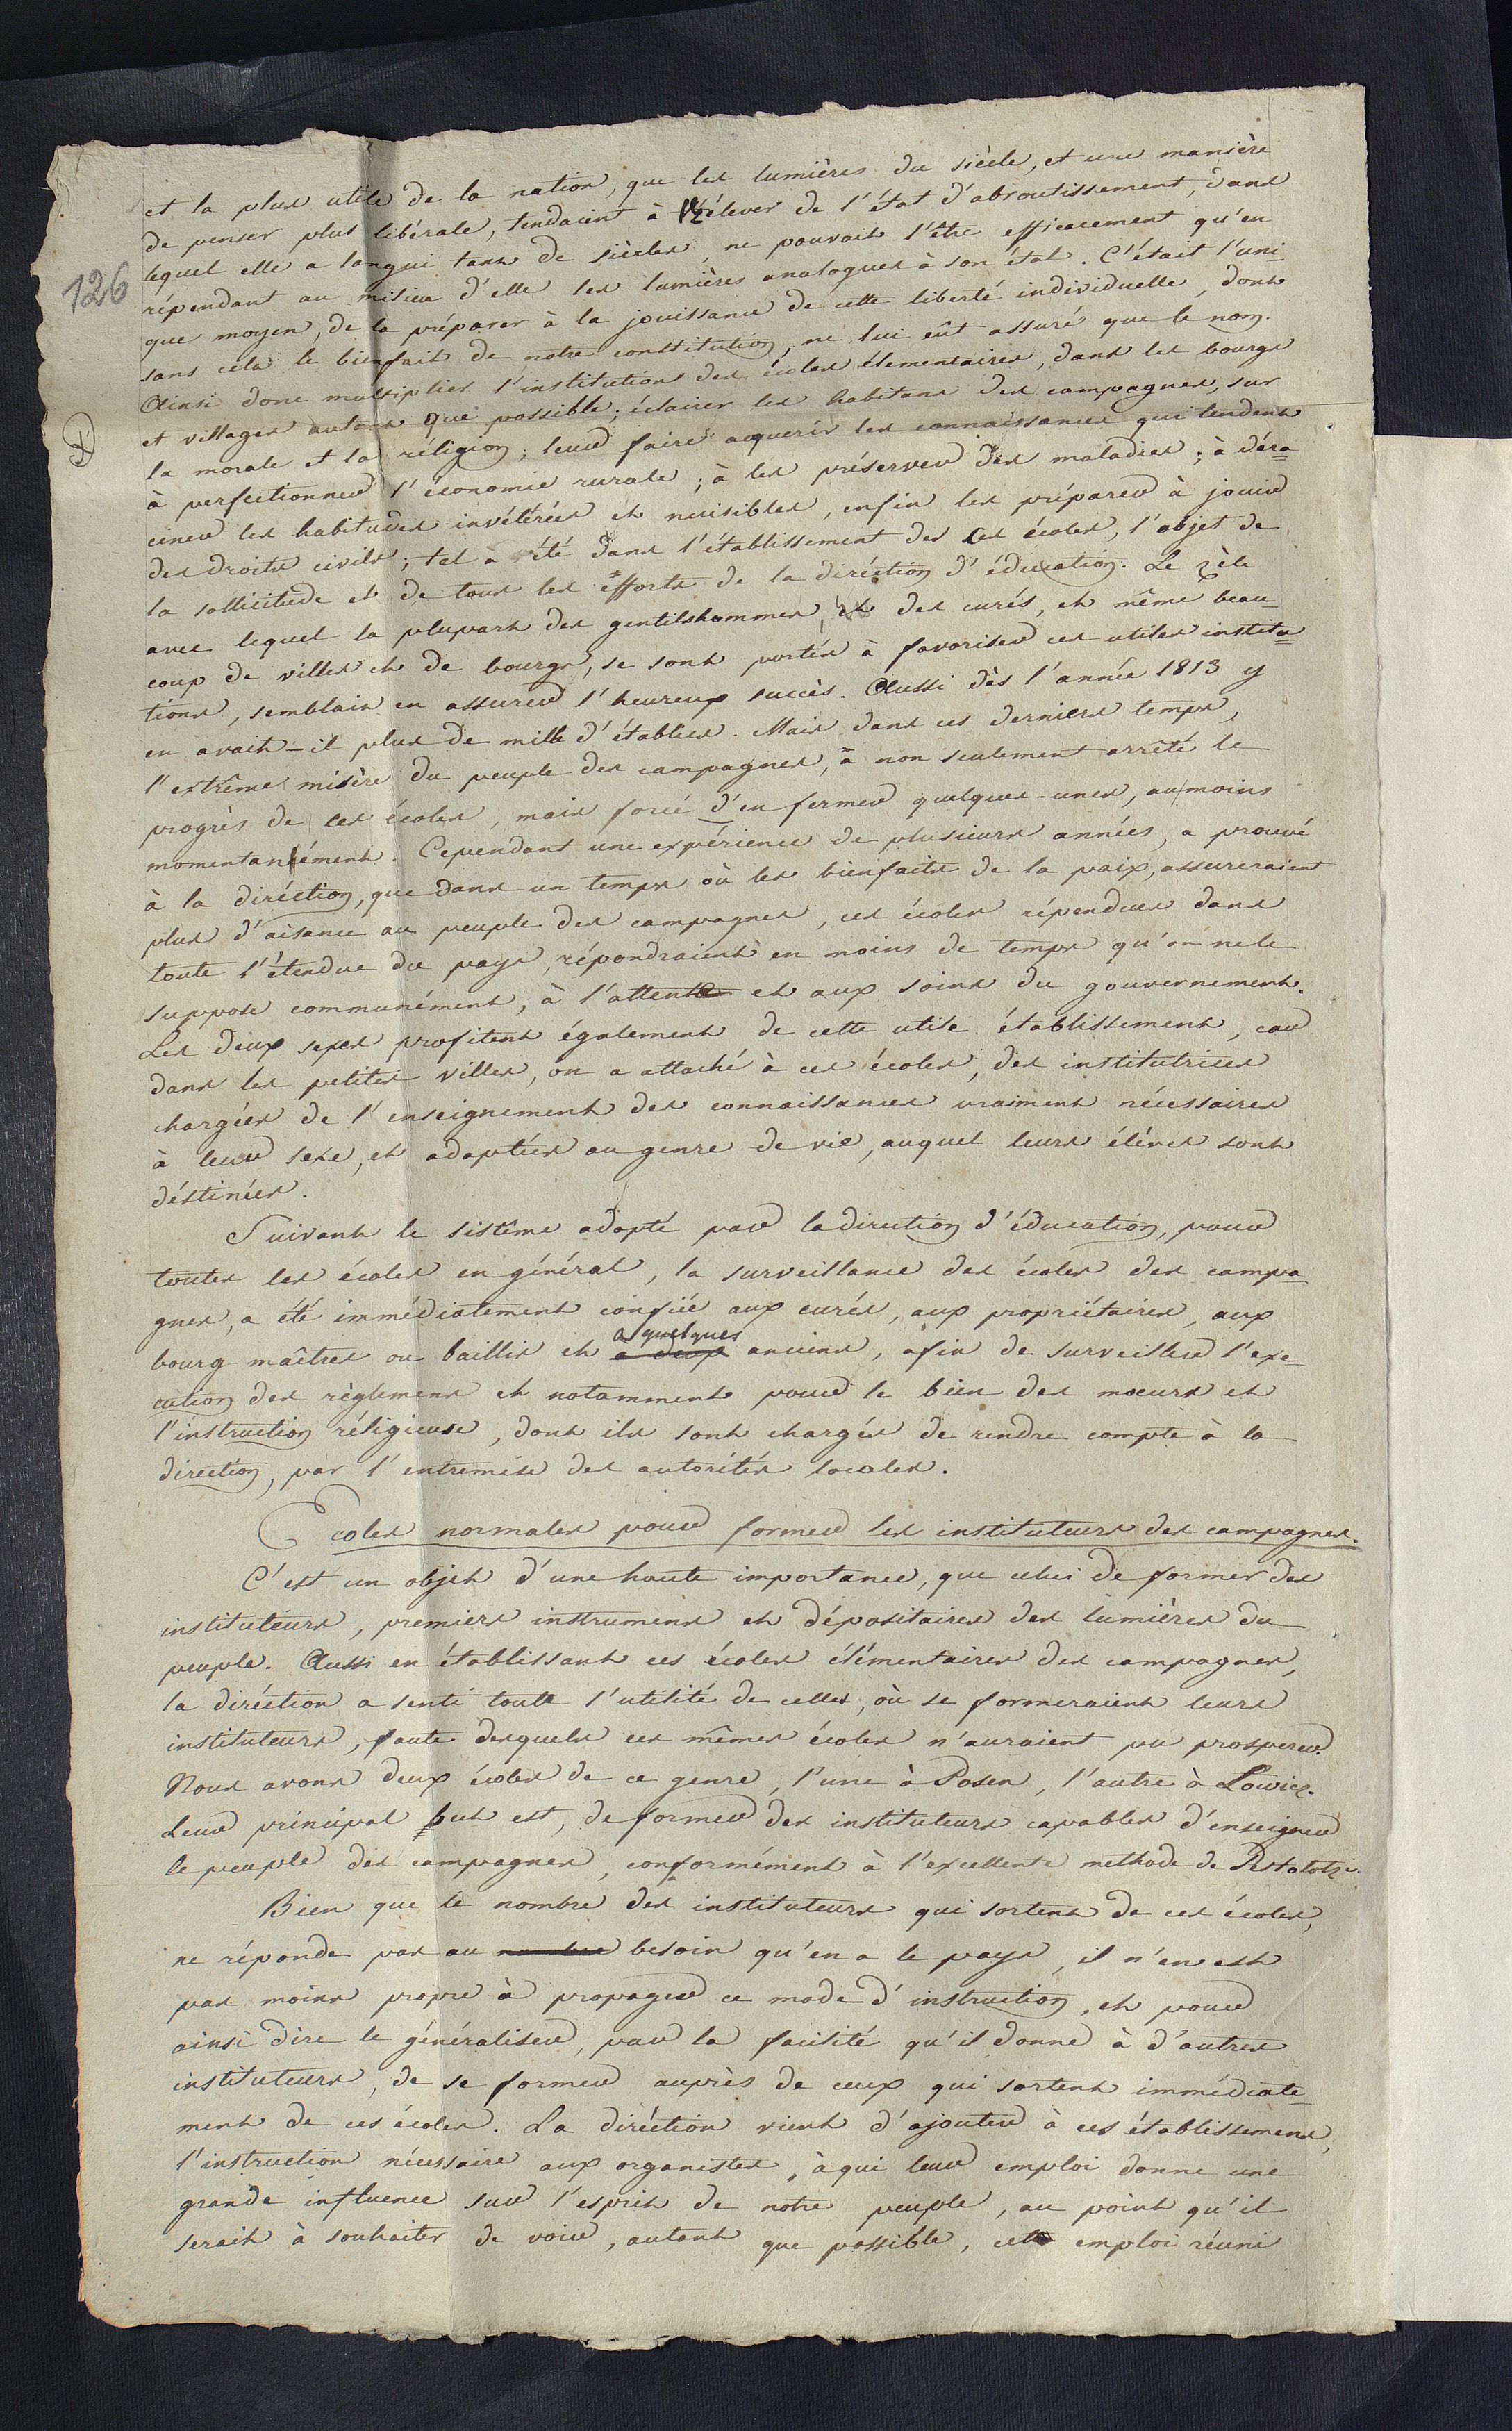 et la plus utile de la nation, que les lumières du siècle, et une manière
de penser plus libérale, tendaient à élever de l'état d'abroutissement, dans
lequel elle a langui tant de siècles, ne pouvait l'être efficacement qu'en
126
répendant au milieu d'elle les lumières analogues à son état. C'était l'uni
que moyen, de la préparer à la jouissance de cette liberté individuelle, dont
sans cela le bienfait de notre constitution, ne lui eût assuré que le nom.
Ainsi donc multiplier l'institution des écoles élementaires, dans les bourgs
et villages autant que possible; éclairer les habitans des campagnes, sur
la morale et la réligion; leur faire acquerir les connaissances qui tendent
à perfectionner l'économie rurale; à les préserver des maladies; à déra=
ciner les habitudes invétérées et nuisibles, enfin les préparer à jouir
des droits civils; tel a été dans l'établissement de ces écoles, l'objet de
la sollicitude et de tous les efforts de la diréction d'éducation. Le zèle
avec lequel la plupart des gentilshommes, et des curés, et même beau=
coup de villes et de bourgs, se sont portés à favoriser ces utiles institu=
tions, semblait en assurer l'heureux succès. Aussi dès l'année 1813 y
en avait-il plus de mille d'établies. Mais dans ces derniers temps,
l'extrême misère du peuple des campagnes, a non seulement arrêté le
progrès de ces écoles, mais forcé d'en fermer quelques-unes, au moins
momentanément. Cependant une expérience de plusieurs années, a prouvé
à la diréction, que dans un temps où les bienfaits de la paix, assureraient
plus d'aisance au peuple des campagnes, ces écoles répendues dans
toute l'étendue du pays, répondraient en moins de temps qu'on ne le
suppose communément, à l'attente et aux soins du gouvernement.
Les deux sexes profitent également de cette utile établissement, car
dans les petites villes, on a attaché à ces écoles, des institutrices
chargées de l'enseignement des connaissances vraiment nécessaires
à leur sexe, et adaptées au genre de vie, auquel leurs élèves sont
déstinées.
Suivant le sistême adopté par la direction d'éducation, pour
toutes les écoles en général, la surveillance des écoles des campa=
gnes, a été immédiatement confiée aux curés, aux propriétaires, aux
a quelques
bourg-maîtres ou baillis et à deux anciens, afin de surveiller l'exe=
cution des règlemens et notamment pour le bien des moeurs et
l'instruction réligieuse, dont ils sont chargés de rendre compte à la
direction, par l'entremise des autorités locales.
Ecoles normales pour former les instituteurs des campagnes.
C'est un objet d'une haute importance, que celui de former des
instituteurs, premiers instrumens et dépositaires des lumières du
peuple. Aussi en établissant ces écoles élémentaires des campagnes,
la diréction a senti toute l'utilité de celles, où se formeraient leurs
instituteurs, faute desquels ces mêmes écoles n'auraient pu prosperer.
Nous avons deux écoles de ce genre, l'une à Posen, l'autre à Lowicz.
Leur principal but est, de former des instituteurs capables d'enseigner
le peuple des campagnes, conformément à l'excellente methode de Pestalotzi.
Bien que le nombre des instituteurs qui sortent de ces écoles,
ne réponde pas au besoin qu'en a le pays, il n'en est
pas moins propre à propager ce mode d'instruction, et pour
ainsi dire le généraliser, par la facilité qu'il donne à d'autres
instituteurs, de se former auprès de ceux qui sortent immédiate=
ment de ces écoles. La diréction vient d'ajouter à ces établissemens,
l'instruction nécessaire aux organistes, à qui leur emploi donne une
grande influence sur l'esprit de notre peuple, au point qu'il
serait à souhaiter de voir, autant que possible, cet emploi réuni